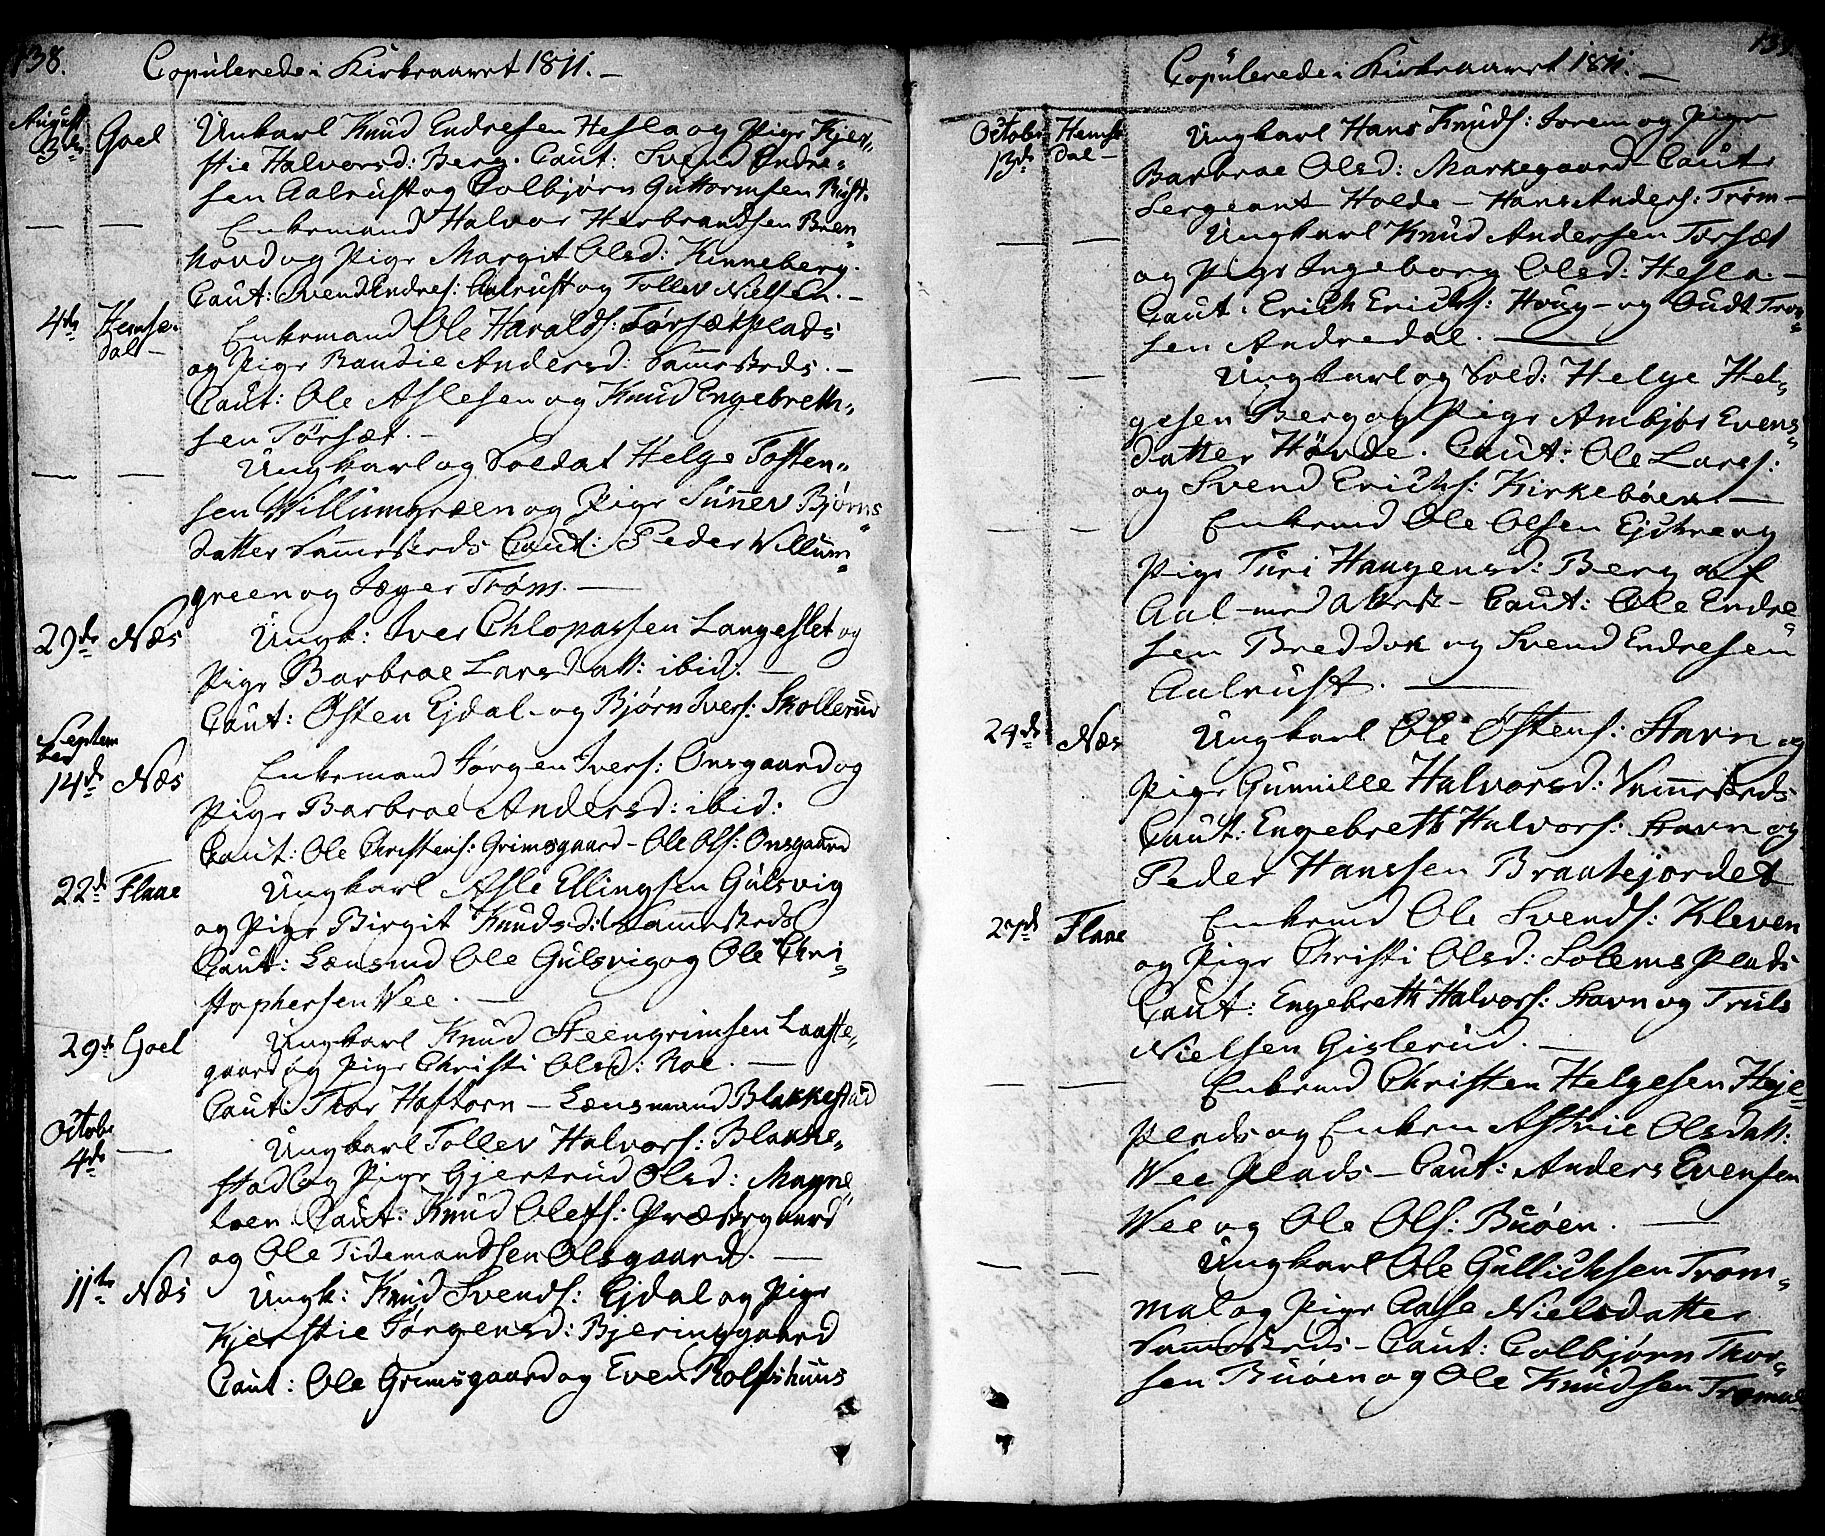 138.
Copulerede i Kirkeaaret 1811. –
August
3de Goel Unkarl Knud Endresen Hesla og Pige Kjer-
stie Halvorsd: Berg. Caut: Svend Endre-
sen Aalrust og Colbjørn Guttormsen Rust.
— — Enkemand Halvor Herbrandsen Bren-
hovd og Pige Margit Olsd: Kinneberg.
Caut: Svend Endres: Aalrust og Tollev Nielsen. –
4de Hemse-
dal – Enkemand Ole Haralds: Torsætplads
og Pige Bandie Andersd: Sammesteds. –
Caut: Ole Aslesen og Knud Engebreth-
sen Torsæt. –
— — Ungkarl og Soldat Helge Tosten-
sen Willumgreen og Pige Sünnev Bjørns
datter Sammesteds Caut: Peder Willum-
green og Jæger Trøm. —
29de Næs Ungk: Iver Chlopassen Langeslet og
Pige Barbroe Larsdatt: ibid: —
Caut: Østen Ejdal – og Bjørn Ivers: Skollerud
Septem
ber
14de Næs Enkemand Jørgen Ivers: Onsgaard og
Pige Barbroe Andersd: ibid:
Caut: Ole Christens: Grimsgaard – Ole Ols: Onsgaard
22de Flaae Ungkarl Asle Ellingsen Gulsvig
og Pige Birgit Knudsd: Sammesteds
Caut: Lænsmd Ole Gulsvig og Ole Chri-
stophersen Wee. —
29de Goel Ungkarl Knud Steengrimsen Laaste-
gaard og Pige Christi Olsd: Roe. —
Caut: Thor Haftorn – Lænsmand Blakkestad
Octobr
4de — Ungkarl Tollev Halvors: Blakke-
stad og Pige Gjertrud Olsd: Magne-
toen. Caut: Knud Olefs: Præstegaard
og Ole Tidemandsen Olsgaard. —
11te Næs Ungk: Knud Svends: Ejdal og Pige
Kjerstie Jørgensd: Bjeringgaard
Caut: Ole Grimsgaard og Even Rolfshuus
139.
Copulerede i Kirkeaaret 1811. –
Octobr
13de Hemse
dal – Ungkarl Hans Knuds: Jorem og Pige
Barbroe Olsd: Markegaard – Caut:
Sergeant Holde – Hans Anders: Trøm –
— — Ungkarl Knud Andersen Torset
og Pige Ingeborg Olsd: Hesla. –
Caut: Erich Erichs: Houg – og Gudt Tron-
sen Andredal. —
— — Ungkarl og Sold: Helge Hel-
gesen Berg og Pige Ambjør Evens-
datter Hovde. Caut: Ole Lars:
og Svend Erichs: Kirkebøen –
— — Enkemd Ole Olsen Ejkre og
Pige Turi Haugensd: Berg af
Aal – med Attest – Caut: Ole Endre-
sen Breddok og Svend Endresen
Aalrust. —
24de Næs Ungkarl Ole Østens: Stavn og
Pige Gunnille Halvorsd: Sammesteds
Caut: Engebreth Halvors: Stavn og
Peder Hanssen Braatejordet
27de Flaae Enkemd Ole Svends: Kleven
og Pige Christi Olsd: Solems Plads
Caut: Engebreth Halvors: Stavn og Truls
Nielsen Gislerud. —
— — Enkemd Christen Helgesen Heje-
plads og Enken Astrie Olsdatt:
Wee Plads – Caut: Anders Evensen
Wee og Ole Ols: Buøen. —
— — Ungkarl Ole Gullichsen Trom-
mal og Pige Aase Nielsdatter
Sammesteds – Caut: Colbjørn Thor-
sen Buøen og Ole Knudsen Tromal